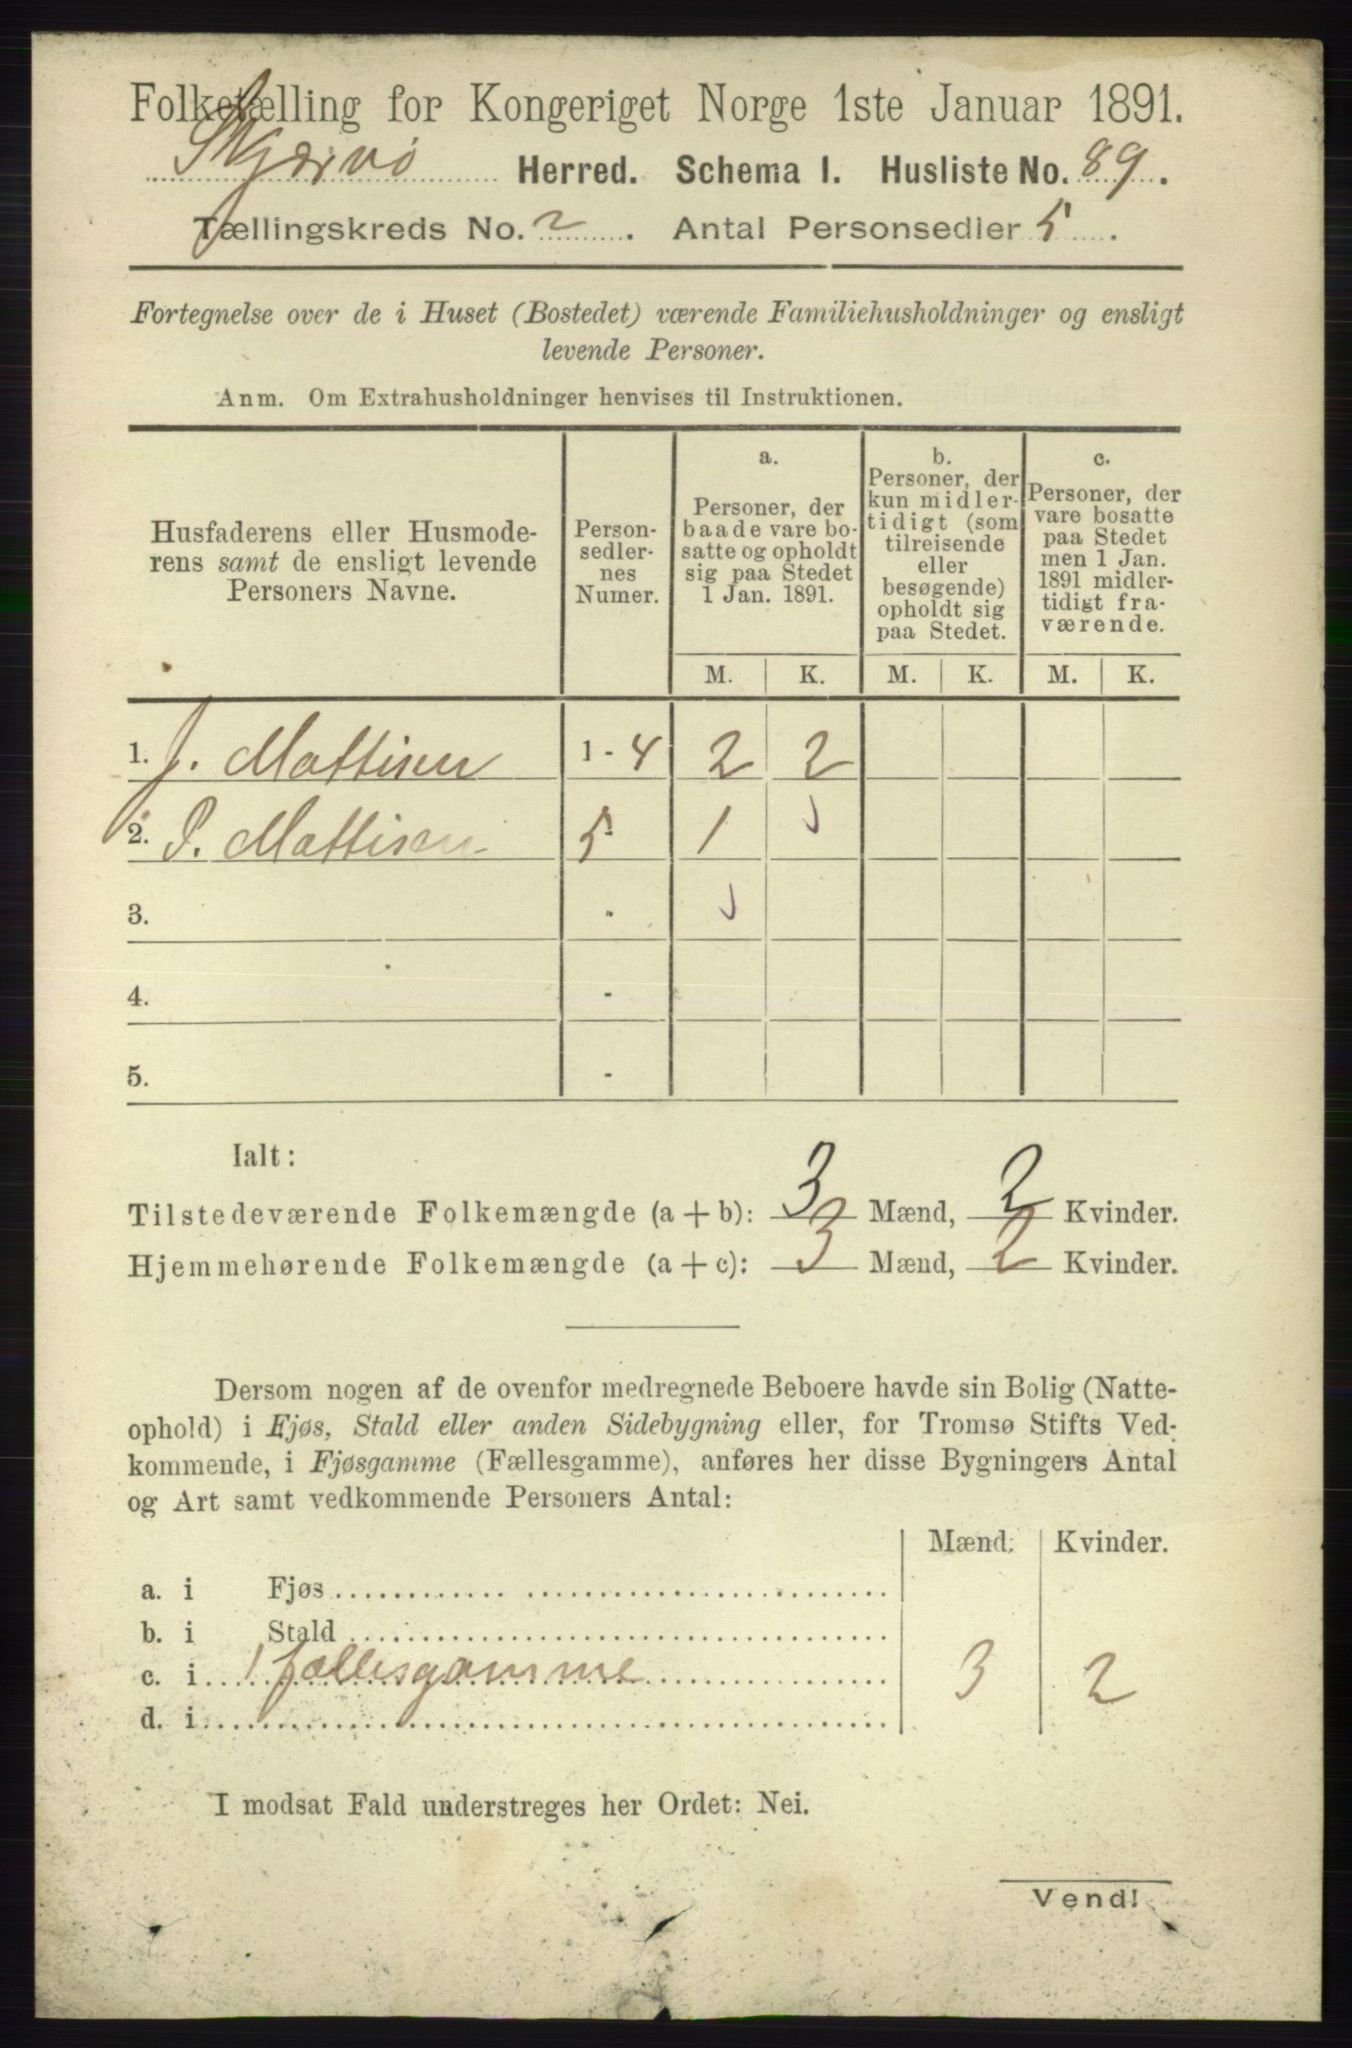 Folketælling for Kongeriget Norge 1ste Januar 1891.
Skjærvø Herred. Schema I. Husliste No. 89.
Tællingskreds No. 2. Antal Personsedler 5.
Fortegnelse over de i Huset (Bostedet) værende Familiehusholdninger og ensligt
levende Personer.
Anm. Om Extrahusholdninger henvises til Instruktionen.
Husfaderens eller Husmode-
rens samt de ensligt levende
Personers Navne.
Person-
sedler-
nes
Numer.
a.
Personer, der
baade vare bo-
satte og opholdt
sig paa Stedet
1 Jan. 1891.
b.
Personer, der
kun midler-
tidigt (som
tilreisende
eller
besøgende)
opholdt sig
paa Stedet.
c.
Personer, der
vare bosatte
paa Stedet
men 1 Jan.
1891 midler-
tidigt fra-
værende.
M. K. M. K. M. K.
1. J. Mattisen 1-4 2 2
2. P. Mattisen 5 1
3. -
4. -
5. -
Ialt:
Tilstedeværende Folkemængde (a + b): 3 Mænd, 2 Kvinder.
Hjemmehørende Folkemængde (a + c): 3 Mænd, 2 Kvinder.
Dersom nogen af de ovenfor medregnede Beboere havde sin Bolig (Natte-
ophold) i Fjøs, Stald eller anden Sidebygning eller, for Tromsø Stifts Ved-
kommende, i Fjøsgamme (Fællesgamme), anføres her disse Bygningers Antal
og Art samt vedkommende Personers Antal:
Mænd. Kvinder.
a. i Fjøs
b. i Stald
c. i 1 fællesgamme 3 2
d. i
I modsat Fald understreges her Ordet: Nei.
Vend!